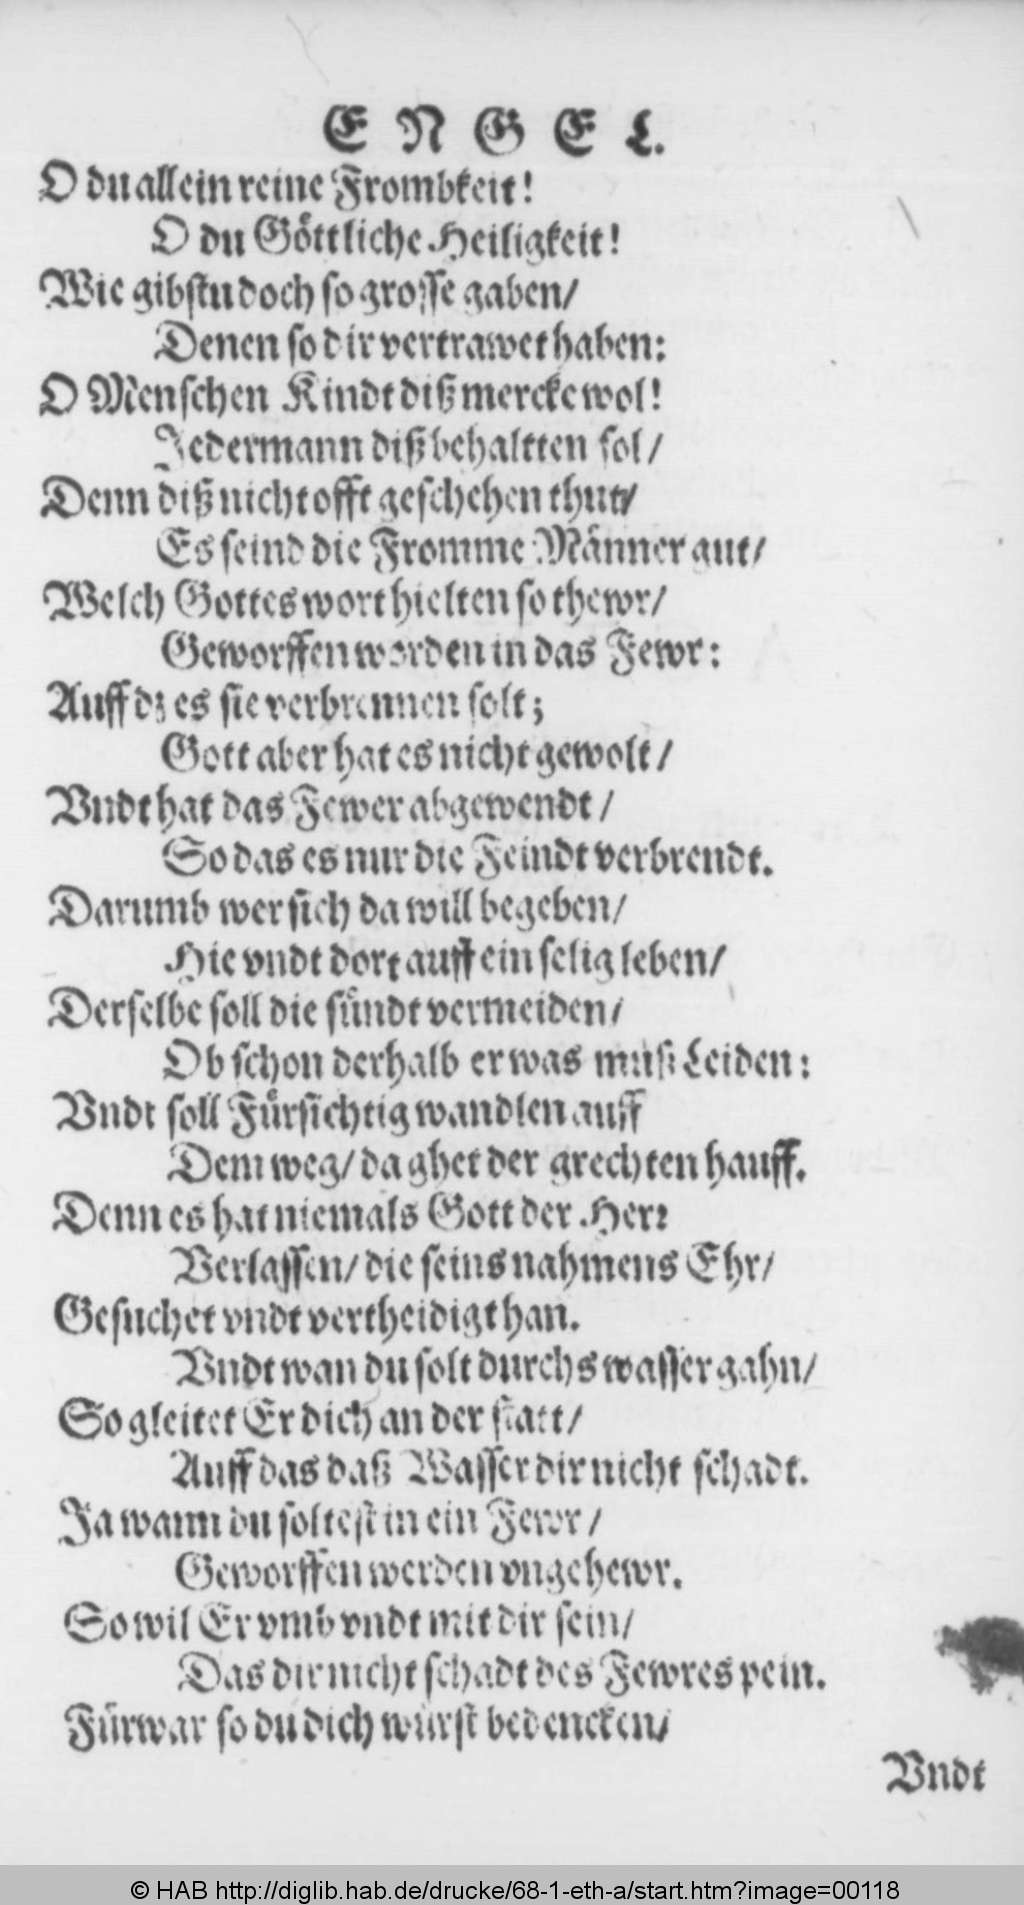 E N G E L.
O du allein reine Frombkeit!
O du Göttliche Heiligkeit!
Wie gibstu doch so grosse gaben/
Denen so dir vertrawet haben:
O Menschen Kindt diß mercke wol!
Jedermann diß behaltten sol/
Denn diß nicht offt geschehen thut/
Es seind die Fromme Männer gut/
Welch Gottes wort hielten so thewr/
Geworffen worden in das Fewr:
Auff dz es sie verbrennen solt;
Gott aber hat es nicht gewolt/
Vndt hat das Fewer abgewendt/
So das es nur die Feindt verbrendt.
Darumb wer sich da will begeben/
Hie vndt dort auff ein selig leben/
Derselbe soll die sündt vermeiden/
Ob schon derhalb er was muß Leiden:
Vndt soll Fürsichtig wandlen auff
Dem weg/ da ghet der grechten hauff.
Denn es hat niemals Gott der Herr
Verlassen/ die seins nahmens Ehr/
Gesuchet vndt vertheidigt han.
Vndt wan du solt durchs wasser gahn/
So gleitet Er dich an der statt/
Auff das daß Wasser dir nicht schadt.
Ja wann du soltest in ein Fewr/
Geworffen werden vngehewr.
So wil Er vmb vndt mit dir sein/
Das dir nicht schadt des Fewres pein.
Fürwar so du dich würst bedencken/
Vndt
© HAB http://diglib.hab.de/drucke/68-1-eth-a/start.htm?image=00118